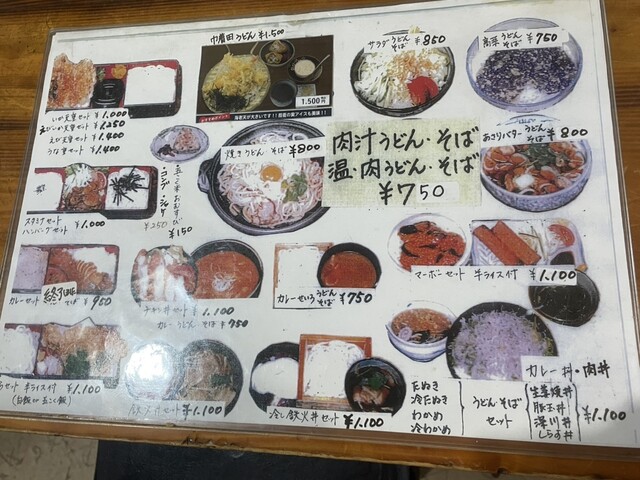 いか天重セット ¥1.000
えびいか天重セット ¥1.250
えび天重セット ¥1.400
うな重セット ¥1.400
うどん ¥1.500
1.500円
サラダ うどん そば ¥850
高菜 うどん そば ¥750
焼きうどん ¥800
肉汁うどん・そば
温・肉うどん・そば
¥750
あさりバター うどん そば ¥800
スタミナセット
ハンバーグセット ¥1.000
¥250
¥150
カレーセット 終了 そば ¥950
チキン丼セット ¥1.100
カレー うどん そば ¥750
カレーせいろ うどん そば ¥750
マーボーセット 半ライス付 ¥1.100
セット 半ライス付 ¥1.100
(白飯 or 五こく飯)
鉄火丼セット ¥1.100
冷し鉄火丼セット ¥1.100
カレー丼・肉丼
たぬき
冷たぬき
わかめ
冷わかめ
うどん・そば
セット
生姜焼丼
豚玉丼
深川丼
しらす丼
¥1.100